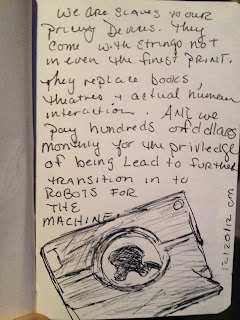 We are slaves to our
pricey Devices. They
come with strings not
in even the finest PRINT.
They replace books,
theatres + actual human
interaction. And we
pay hundreds of dollars
monthly for the priviledge
of being lead to further
TRANSITION IN TO
ROBOTS FOR
THE
MACHINE!
12/20/12 cm